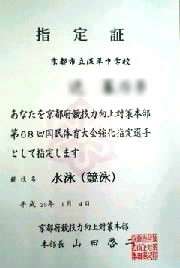 指定証
京都市立西京中学校
あなたを京都府競技力向上対策本部
第68回国民体育大会強化指定選手
として指定します
水泳(競泳)
平成25年 月 日
京都府競技力向上対策本部
本部長 山田啓二